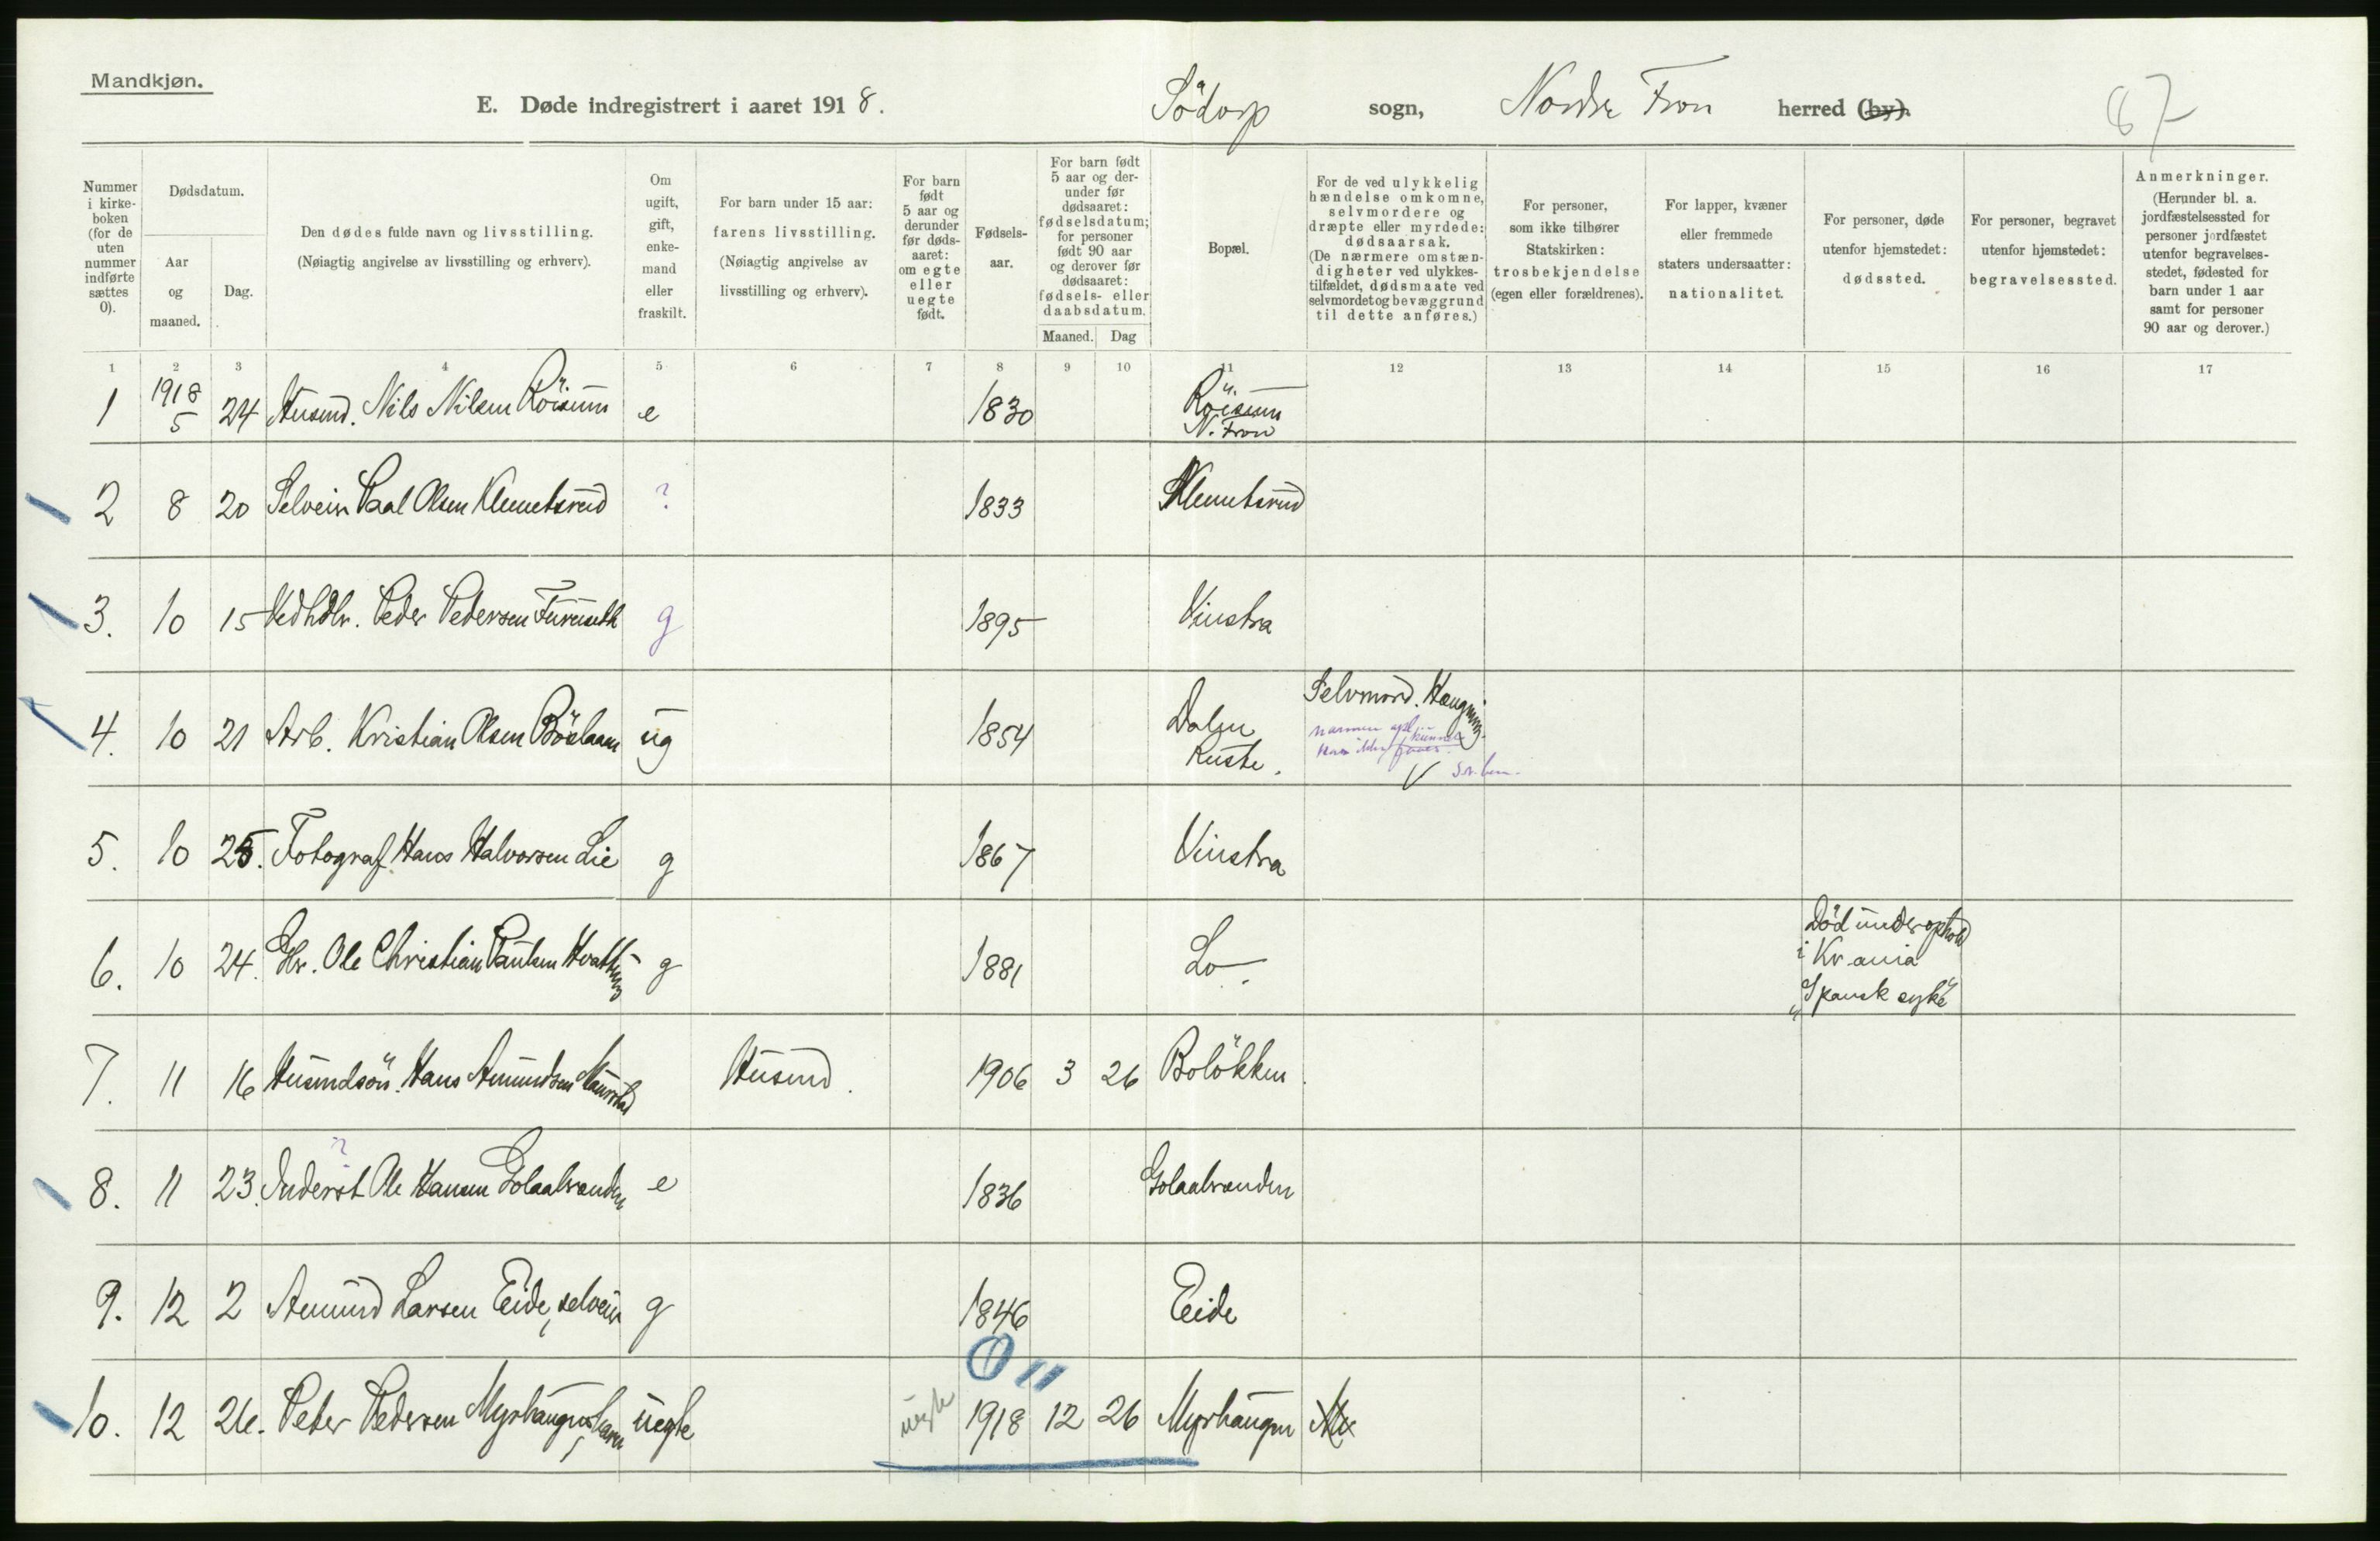 Mandkjøn.
E. Døde indregistrert i aaret 1918. Södorp sogn, Nordre Fron herred (by). 87
Nummer i kirke-boken (for de uten nummer indførte sættes 0).
Dødsdatum.
Aar og maaned.
Dag.
Den dødes fulde navn og livsstilling.
(Nøiagtig angivelse av livsstilling og erhverv).
Om ugift, gift, enkemand eller fraskilt.
For barn under 15 aar: farens livsstilling.
(Nøiagtig angivelse av livsstilling og erhverv).
For barn født 5 aar og derunder før dødsaaret: om egte eller uegte født.
Fødselsaar.
For barn født 5 aar og derunder før dødsaaret: fødselsdatum; for personer født 90 aar og derover før dødsaaret: fødsels- eller daabsdatum.
Maaned. Dag
Bopæl.
For de ved ulykkelig hændelse omkomne, selvmordere og dræpte eller myrdede: dødsaarsak.
(De nærmere omstændigheter ved ulykkestilfældet, dødsmaate ved selvmordet og bevæggrund til dette anføres.)
For personer, som ikke tilhører Statskirken: trosbekjendelse (egen eller forældrenes).
For lapper, kvæner eller fremmede staters undersaatter: nationalitet.
For personer, døde utenfor hjemstedet: dødssted.
For personer, begravet utenfor hjemstedet: begravelsessted.
Anmerkninger.
(Herunder bl. a. jordfæstelsessted for personer jordfæstet utenfor begravelsesstedet, fødested for barn under 1 aar samt for personer 90 aar og derover.)
1 2 3 4 5 6 7 8 9 10 11 12 13 14 15 16 17
1 1918 5 24 Husmd. Nils Nilsen Röisum e 1830 Röisum N. Fron
2 8 20 Selveier Paal Olsen Klemetsrud ? 1833 Klemetsrud
3. 10 15 Vedhdlr. Peder Pedersen Furuseth g 1895 Vinstra
4. 10 21 Arb. Kristian Olsen ug 1854 Dalen Ruste. Selvmord. Hængning.
5. 10 25. Fotograf Hans Halvorsen Lie g 1867 Vinstra
6. 10 24. Gbr. Ole Christian Paulsen Kvatning g 1881 Lo. Död under ophold i Kr.ania "Spansk syke"
7. 11 16 Husmdsön. Hans Amundsen Husmd. 1906 3 26 Bolökken
8. 11 23. Inderst ? Ole Hansen Golaabranden e 1836 Golaabranden
9. 12 2 Amund Larsen Eide, selveier g 1846 Eide
10. 12 26. Peder Pedersen Myrhaugen, barn uegte uegte 1918 12 26 Myrhaugen